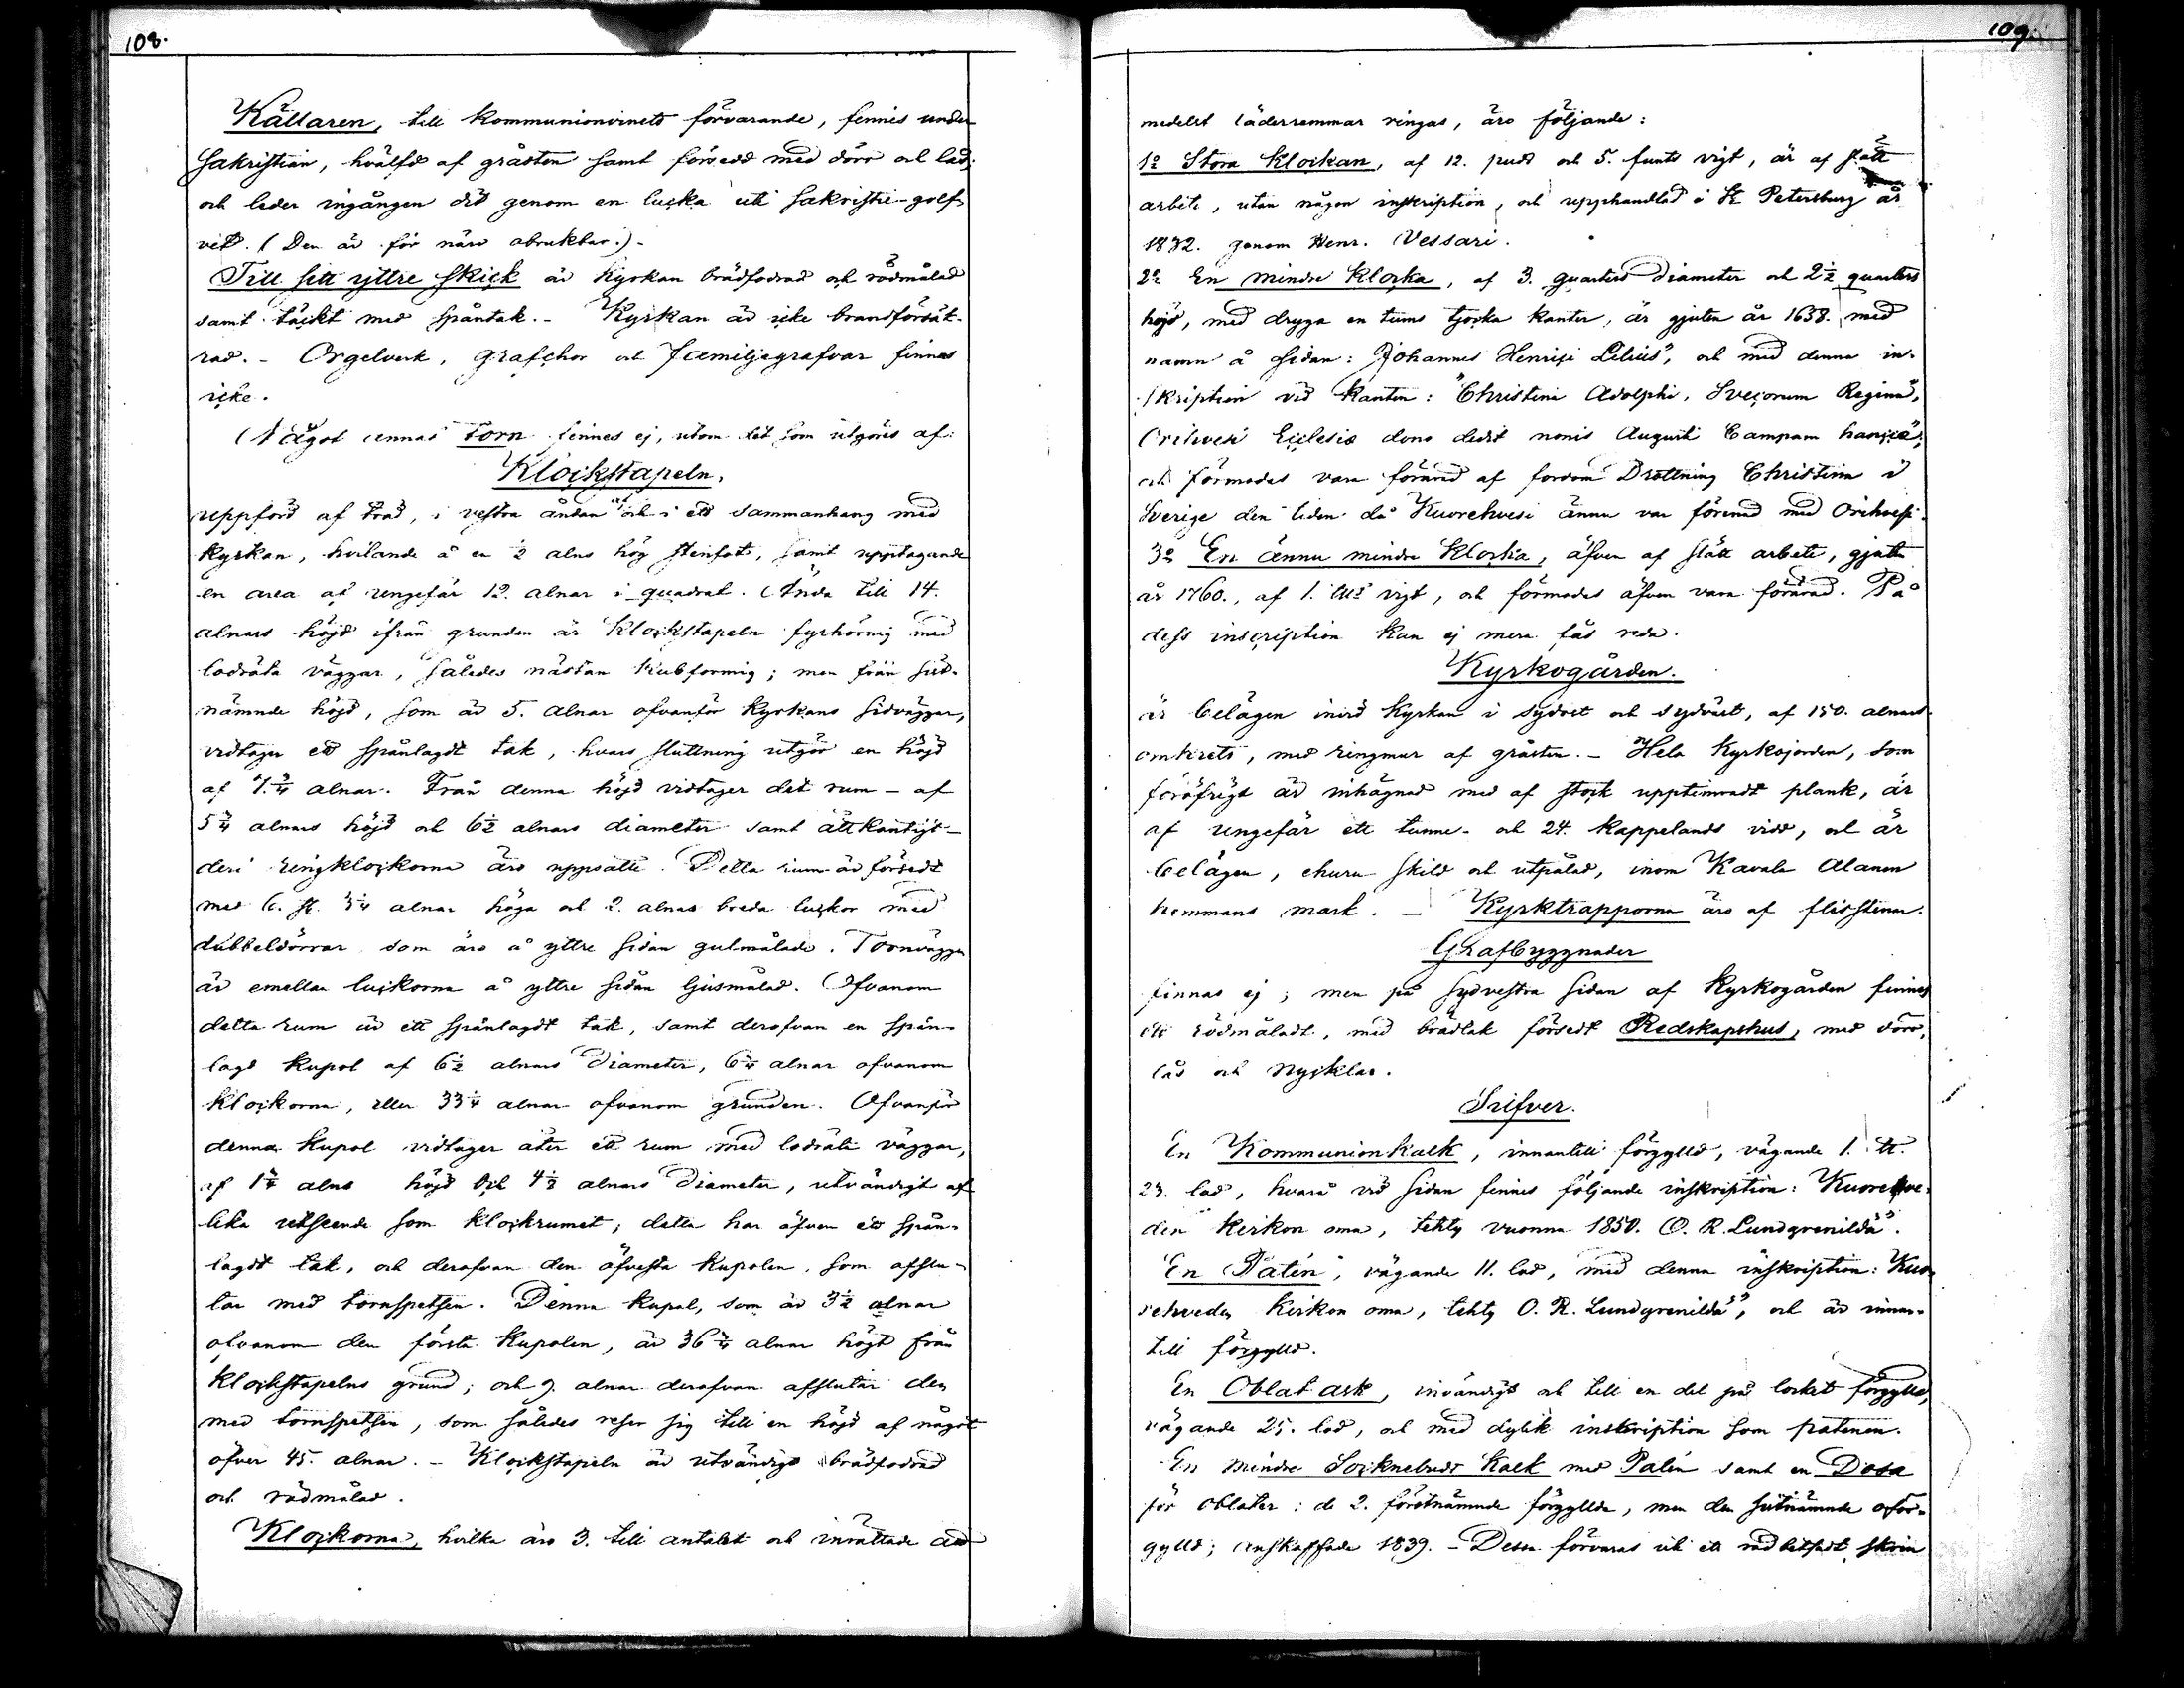 108.
Källaren, till kommunionvinets förvarande, finnes under
Sakristian, hvälfd af gråsten samt försedd med dörr och lås;
och leder ingången dit genom en lucka uti Sakristie-golf-
vet. (Den är för närv. obrukbar.).-
Till sitt yttre skick är kyrkan brädfodrad och rödmålad
samt täckt med spåntak. - Kyrkan är icke brandförsäk-
rad. - Orgelverk, grafchor och Familjegrafvar finnas
icke.
Något annat Torn finnes ej, utom det som utgöres af:
Klockstapeln,
uppförd af träd, i vestra ändan och i ett sammanhang med
kyrkan, hvilande å en ½ alns hög stenfot, samt upptagande
en area af ungefär 12 alnar i quadrat. Ända till 14.
alnars höjd ifrån grunden är klockstapeln fyrhörnig med
lodräta väggar, således nästan kubformig; men från sist-
nämnde höjd, som är 5. alnar ofvanför kyrkans sidväggar,
vidtager ett spånlagdt tak, hvars sluttning utgör en höjd
af alnar. Från denna höjd vidtager det rum - af
5¾ alnars höjd och 6½ alnars diameter samt åttkantigt -
deri ringklockorna äro uppsatte. Detta rum är försedt
med 6. st. alnar höga och 2. alnar breda luckor med
dubbeldörrar som äro å yttre sidan gulmålade. Tornväggen
är emellan luckorna å yttre sidan ljusmålad. Ofvanom
detta rum är ett spånlagdt tak, samt derofvan en spån-
lagd kupol af 6½ alnars diameter, alnar ofvanom
klockorna, eller 33¼ alnar ofvanom grunden. Ofvanför
denna kupol vidtager åter ett rum med lodräta väggar,
af alns höjd och 4½ alnars diameter, utvändigt af
lika utseende som klockrumet; detta har äfven ett spån-
lagdt tak, och derofvan den öfversta kupolen, som afslu-
tas med tornspetsen. Denna kupol, som är 3½ alnar
ofvanom den första kupolen, är 36¾ alnar högt från
klockstapelns grund; och 9. alnar derofvan afslutar den
med tornspetsen, som således reser sig till en höjd af något
öfver 45. alnar. - Klockstapeln är utvändigt brädfodrad
och rödmålad.
Klockorna, hvilka äro 3. till antalet och inrättade att
109.
medelst läderremmar ringas, äro följande:
1o Stora Klockan, af 12. pud och 5. funts vigt, är af slätt
arbete, utan någon inskription, och upphandlad i St Petersburg år
1832. genom Henr. Vessari.
2o En mindre Klocka, af 3. quarters diameter och 2½ quarters
höjd, med dryga en tums tjocka kanter, är gjuten år 1638. med
namn å sidan: Johannes Henrici Lilius", och med denna in-
skription vid kanten: "Christina Adolphi, Svecorum Regina,
Orihvesi Ecclesiæ dono dedit nonis Augusti Campam hancce";
och förmodas vara förärad af fordom Drottning Christina i
Sverige den tiden då Kuorehvesi ännu var förenad med Orihvesi.
3o En ännu mindre Klocka, äfven af slätt arbete, gjuten
år 1760., af 1. vigt, och förmodas äfven vara förärad. På
dess inscription kan ej mera fås reda.
Kyrkogården.
är belägen invid kyrkan i sydost och sydväst, af 150. alnars
omkrets, med ringmur af gråsten. - Hela kyrkojorden, som
föröfrigt är inhägnad med af stock upptimradt plank, är
af ungefär ett tunne- och 24. kappelands vidd, och är
belägen, ehuru skild och utpålad, inom Kavala Alanen
hemmans mark. - Kyrktrapporna äro af flisstenar.
Grafbyggnader
finnas ej; men på sydvestra sidan af kyrkogården finnes
ett rödmåladt, med brädtak försedt Redskapshus, med dörr,
lås och nycklar.
Silfver.
En Kommunionkalk, innantill förgylld, vägande 1. ℔.
23. lod, hvarå vid sidan finnes följande inskription: Kuorehve-
den Kirkon oma, tehty vuonna 1850. O. R. Lundgrenildä".
En Patén, vägande 11. lod, med denna inskription: Kuo-
rehveden Kirkon oma, tehty O. R. Lundgrenildä", och är innan-
till förgylld.
En Oblat ask, invändigt och till en del på locket förgylld,
vägande 25. lod, och med dylik inskription som patenen.
En mindre Socknebuds Kalk med Patén samt en Dosa
för oblater: de 2. förstnämnde förgyllda, men den sistnämnde oför-
gylld; anskaffade 1839. - Dessa förvaras uti ett rödbetsadt skrin